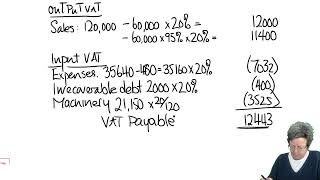 OUTPUT VAT
Sales: 120,000 - 60,000 × 20% = 12000
- 60,000 × 95% × 20% = 11400
Input VAT
Expenses. 35640 - 480 = 35160 × 20% (7032)
Irrecoverable debt 2000 × 20% (400)
Machinery 21,150 × 20/120 (3525)
VAT Payable 12443